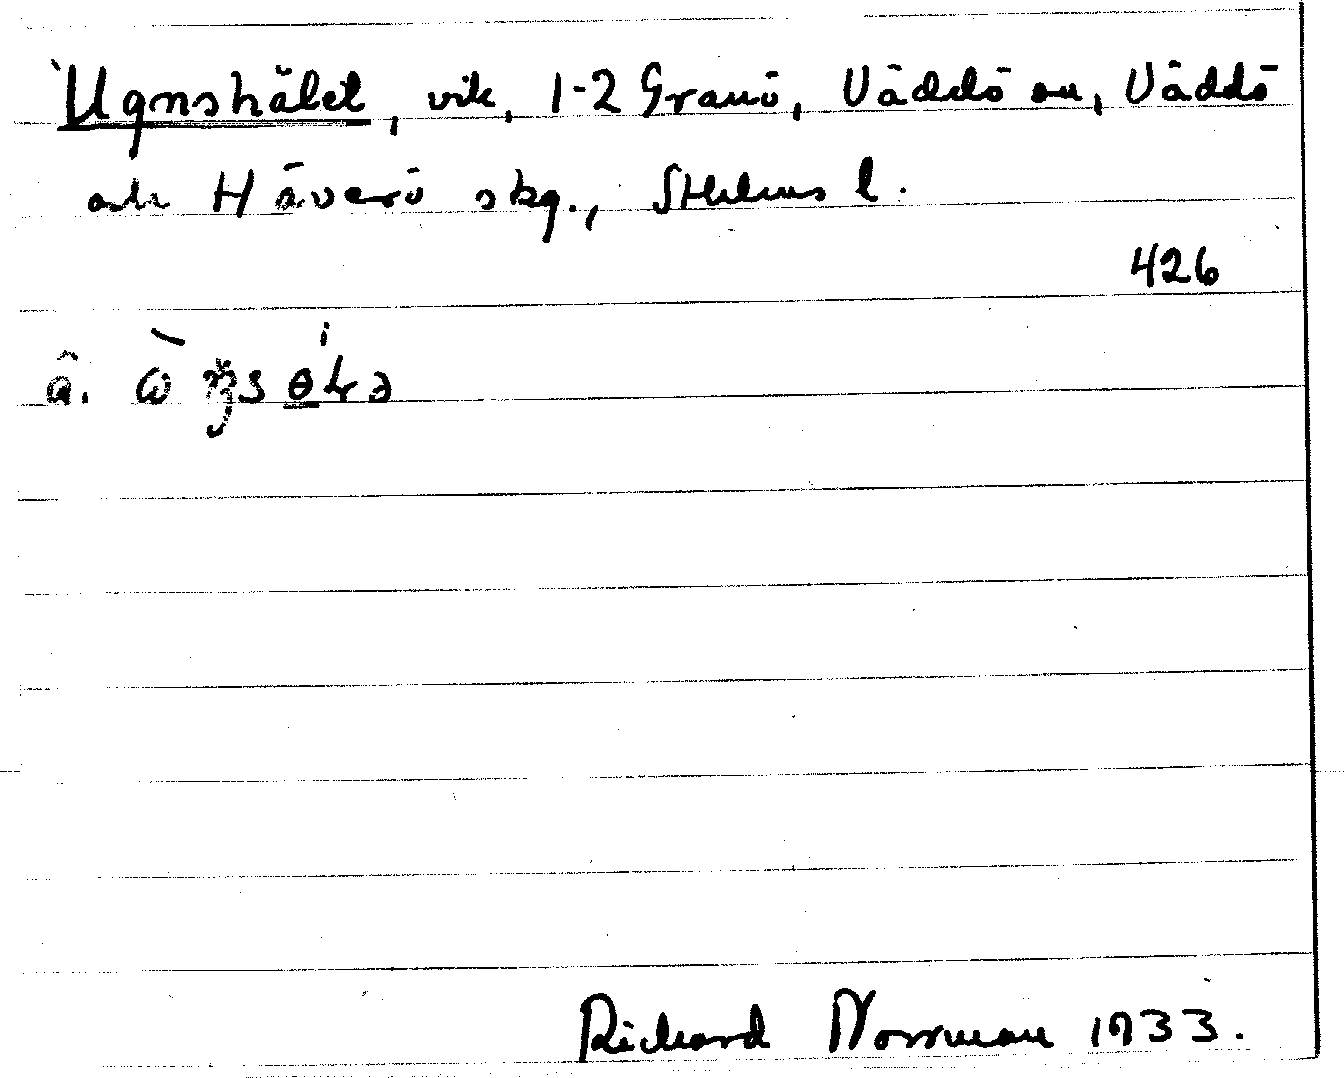 Ugnshålet, vik, 1-2 Granö, Väddö sn, Väddö
och Häverö skg., Sthlms l.
426
Richard Norrman 1933.